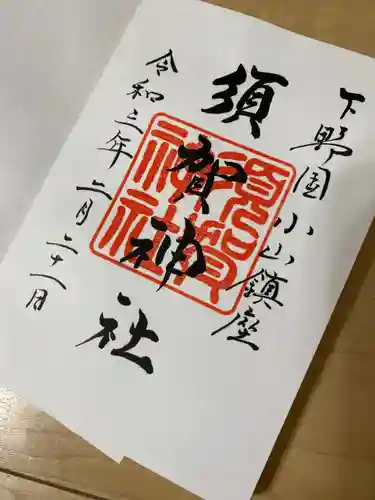 下野國小山鎮座
須賀神社
須賀神社
令和三年二月二十一日